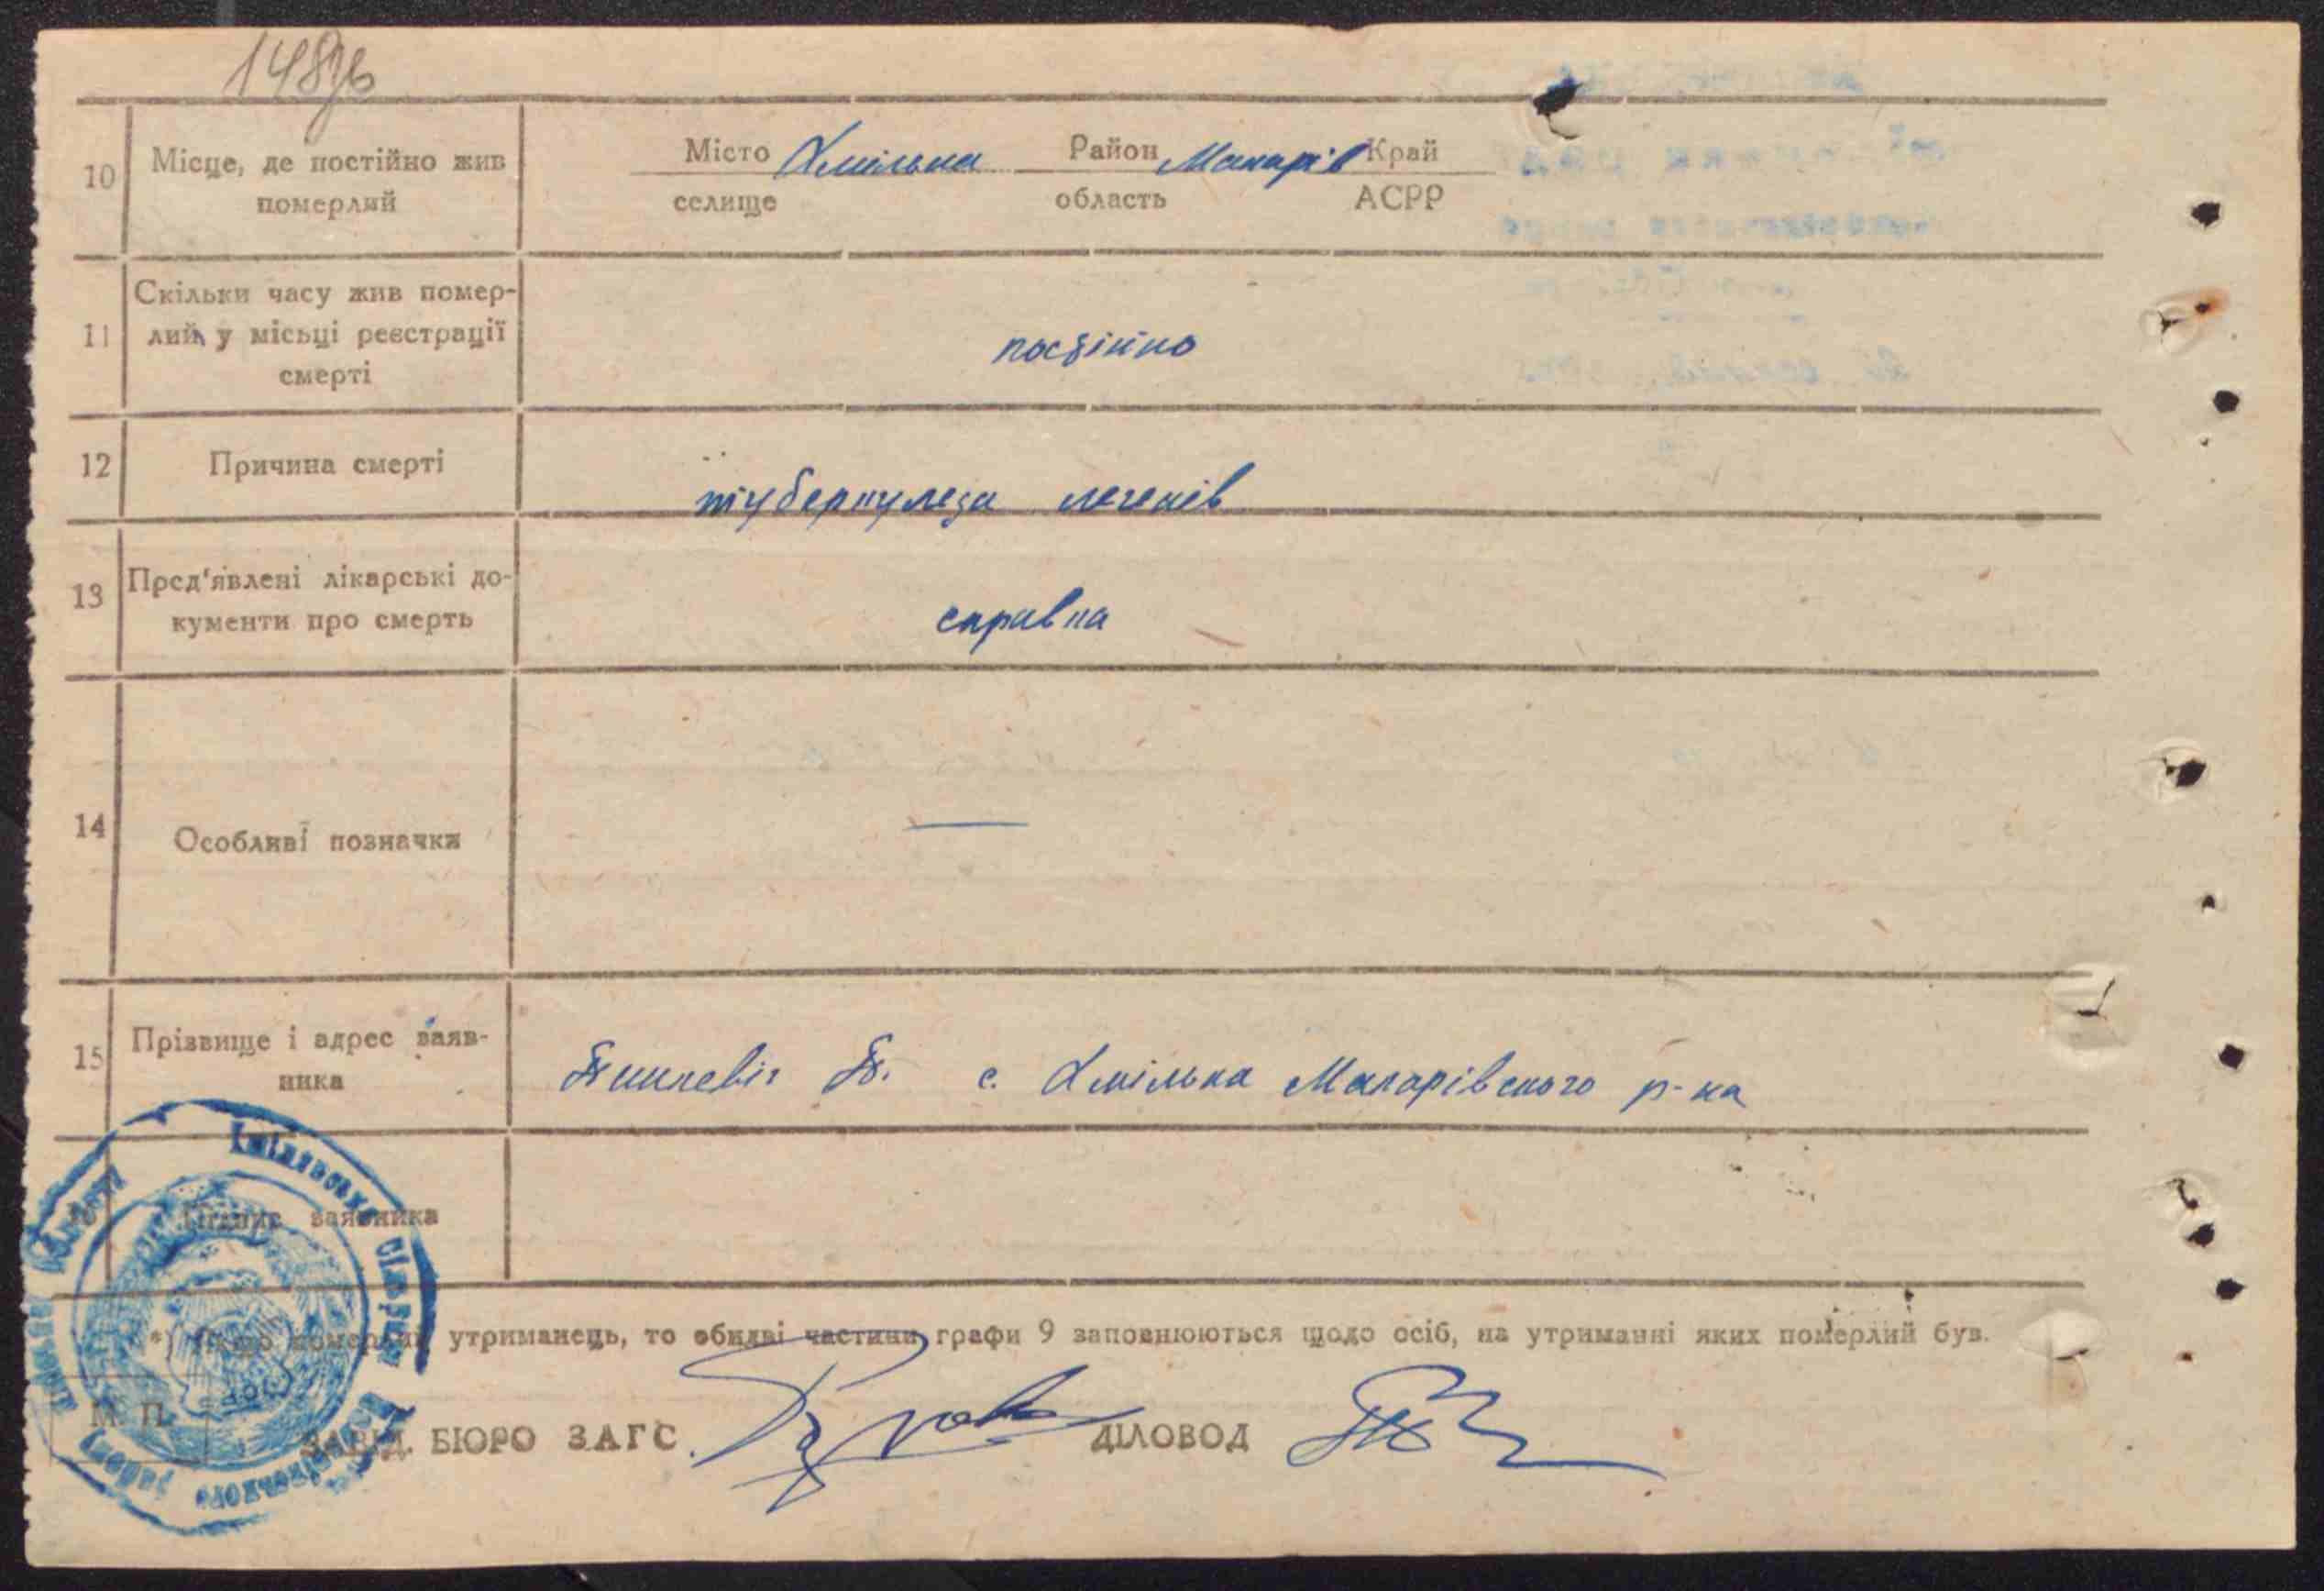 148 зв
10 Місце, де постійно жив померлий
Місто Хмільна Район Макарів Край
селище область АСРР
11 Скільки часу жив помер-
лий у місьці реєстрації
смерті
постійно
12 Причина смерті
туберкульоза легенів
13 Пред'явлені лікарські до-
кументи про смерть
справка
14 Особливі позначки
—
15 Прізвище і адрес заяв-
ника
с. Хмільна Макарівського р-на
Підпис заявника
*) Якщо померлий утриманець, то обидві частини графи 9 заповнюються щодо осіб, на утриманні яких померлий був.
М. П.
ЗАВІД. БЮРО ЗАГС ДІЛОВОД